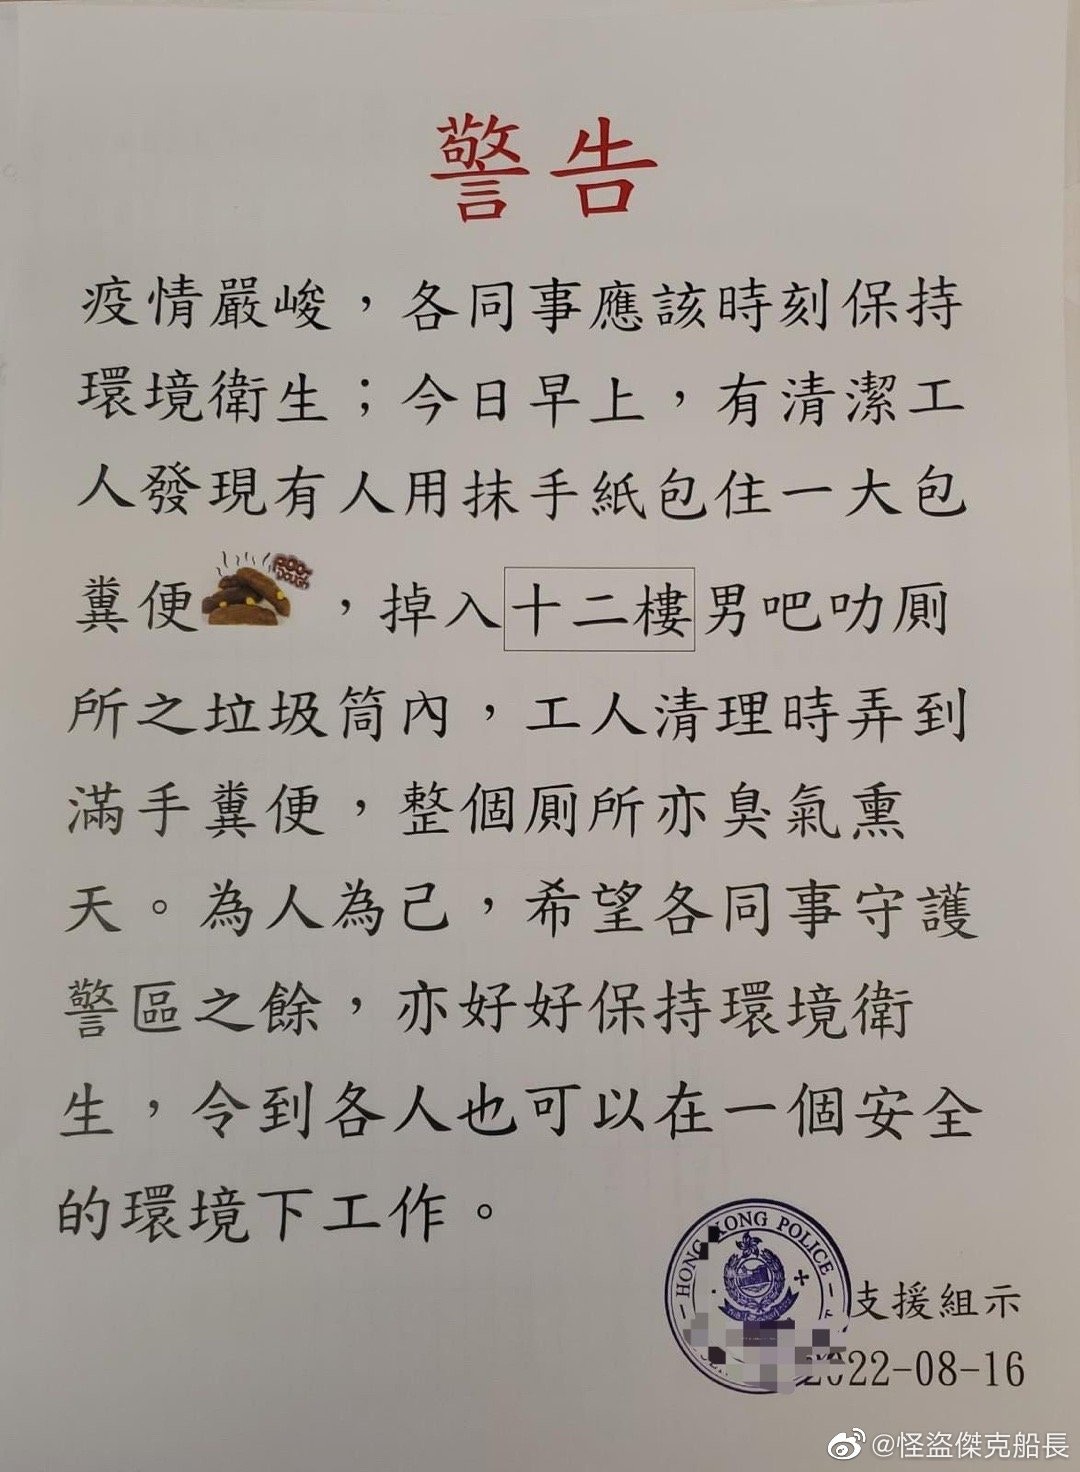 警告
疫情嚴峻，各同事應該時刻保持
環境衛生；今日早上，有清潔工
人發現有人用抹手紙包住一大包
糞便，掉入十二樓男吧叻厠
POO-
DOUGH
所之垃圾筒內，工人清理時弄到
滿手糞便，整個厠所亦臭氣熏
天。為人為己，希望各同事守護
警區之餘，亦好好保持環境衛
生，令到各人也可以在一個安全
的環境下工作。
HONG KONG POLICE
支援組示
2022-08-16
@怪盜傑克船長